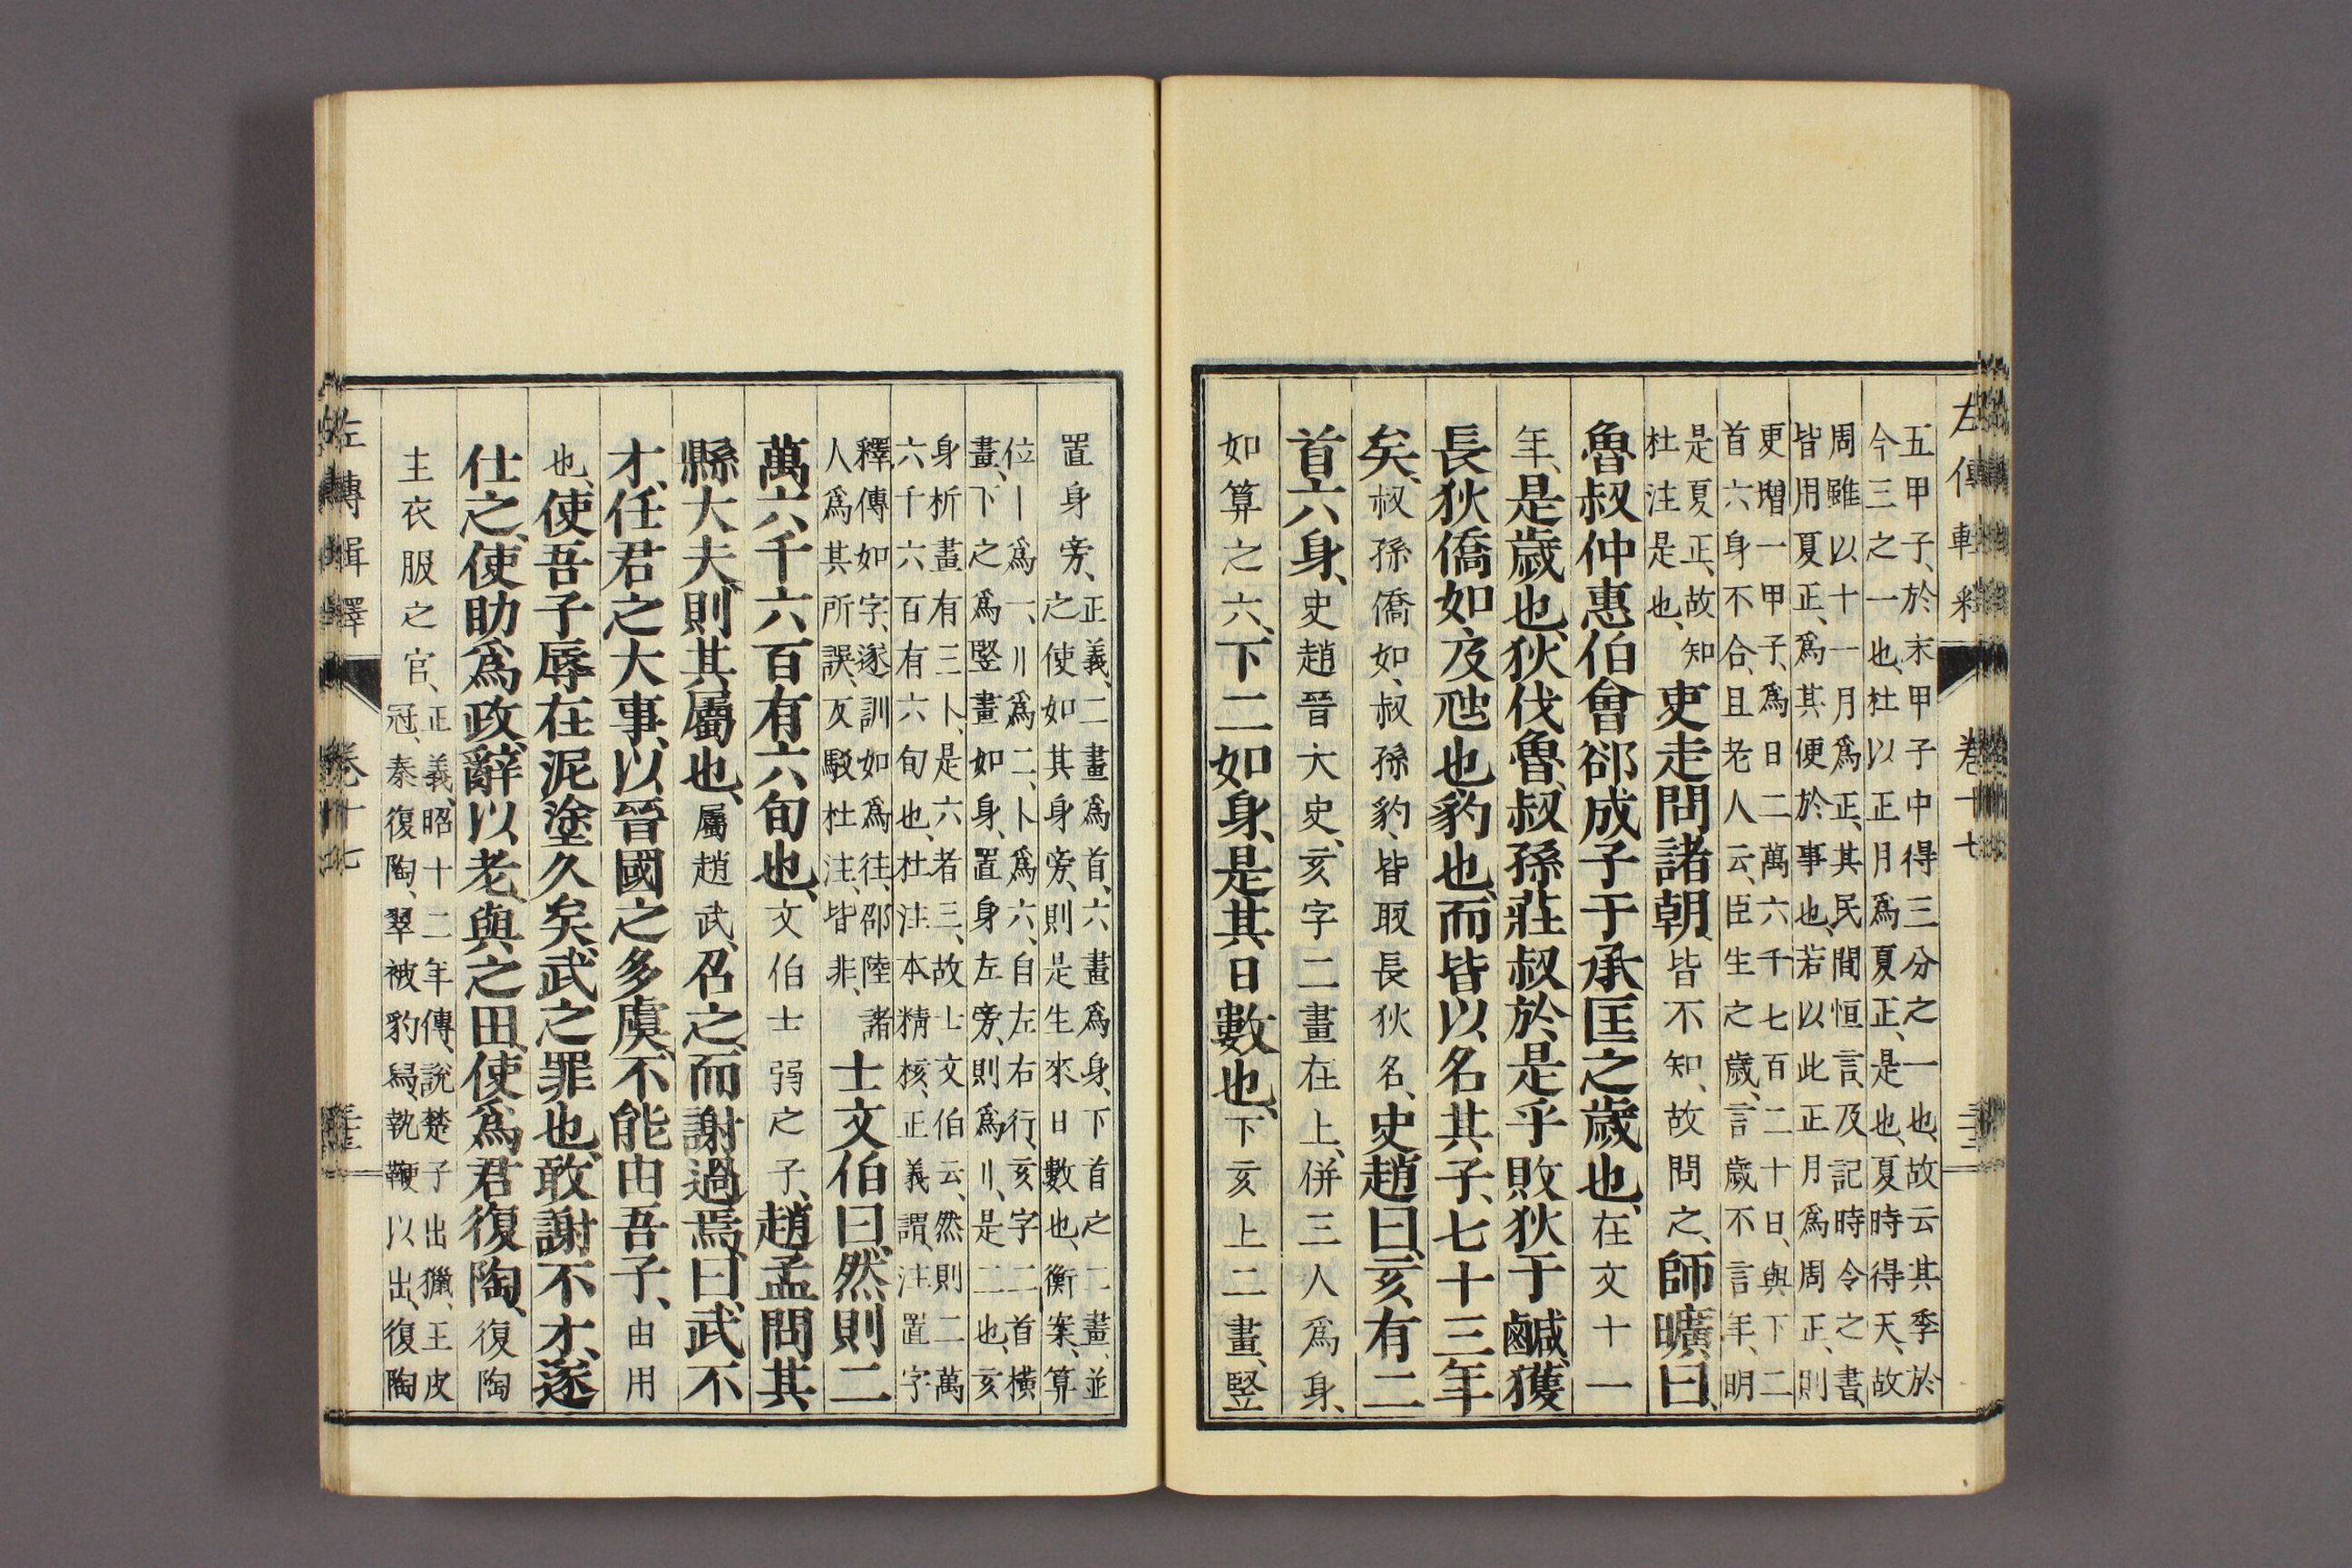 五甲子、於末甲子中得三分之一也、故云其季於
今三之一也、杜以正月爲夏正、是也、夏時得天、故
周雖以十一月爲正、其民間恒言、及記時令之書、
皆用夏正、爲其便於事也、若以此正月爲周正、則
更增一甲子、爲日二萬六千七百二十日、與下二
首六身不合、且老人云、臣生之歲、言歲不言年、明
是夏正、故知
杜注是也、
吏走問諸朝、皆不知、故問之、師曠曰、
魯叔仲惠伯會郤成子于承匡之歲也、在文十一
年、是歲也、狄伐魯、叔孫莊叔於是乎敗狄于鹹、獲
長狄僑如、及虺也、豹也、而皆以名其子、七十三年
矣、叔孫僑如、叔孫豹、皆取長狄名、史趙曰、亥有二
首六身、史趙晉大史、亥字二畫在上、併三人爲身、
如算之六、下二如身、是其日數也、下亥上二畫、竪
置身旁、
正義、二畫爲首、六畫爲身、下首之二畫、並
之使如其身旁、則是生來日數也、衡案、算
位〡爲一、〢爲二、〦爲六、自左右行、亥字二首橫
畫、下之爲竪畫如身、置身左旁、則爲〢、是二也、亥
身析畫有三〦、是六者三、故士文伯云、然則二萬
六千六百有六旬也、杜注本精核、正義謂、注置字
釋傳如字、遂訓如爲往、邵陸諸
人爲其所誤、反駁杜注、皆非、
士文伯曰、然則二
萬六千六百有六旬也、文伯士弱之子、趙孟問其
縣大夫、則其屬也、屬趙武、召之、而謝過焉、曰、武不
才、任君之大事、以晉國之多虞、不能由吾子、由用
也、使吾子辱在泥塗久矣、武之罪也、敢謝不才、遂
仕之、使助爲政、辭以老、與之田、使爲君復陶、復陶
主衣服之官、
正義、昭十二年傳、說楚子出獵、王皮
冠、秦復陶、翠被豹舄、執鞭以出、復陶
左傳輯釋
卷十七